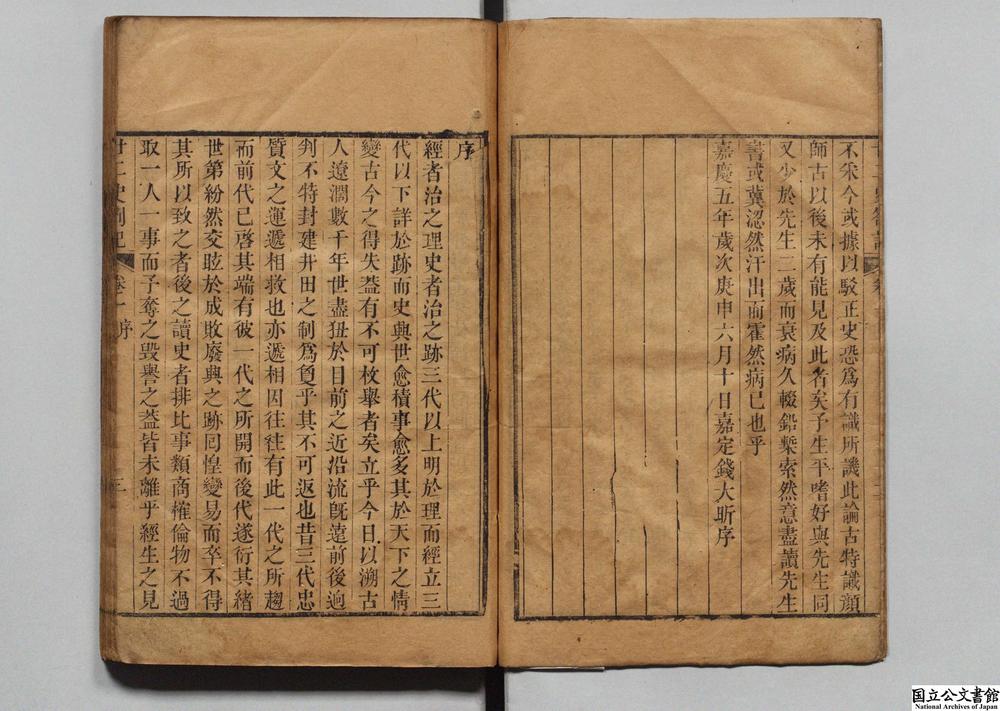 不采今或據以駁正史恐爲有識所譏此論古特識顔
師古以後未有能見及此者矣予生平嗜好與先生同
又少於先生二歲而衰病久輟鉛槧索然意盡讀先生
書或冀涊然汗出而霍然病已也乎
嘉慶五年歲次庚申六月十日嘉定錢大昕序
序
經者治之理史者治之跡三代以上明於理而經立三
代以下詳於跡而史興世愈積事愈多其於天下之情
變古今之得失葢有不可枚舉者矣立乎今日以溯古
人遼濶數千年世盡狃於目前之近沿流旣遠前後逈
判不特封建井田之制爲夐乎其不可返也昔三代忠
質文之運遞相救也亦遞相因往往有此一代之所趨
而前代已啓其端有彼一代之所開而後代遂衍其緒
世第紛然交眩於成敗廢興之跡囘惶變易而卒不得
其所以致之者後之讀史者排比事類商榷倫物不過
取一人一事而予奪之毀譽之葢皆未離乎經生之見
廿二史劄記 卷一 序 三
国立公文書館
National Archives of Japan